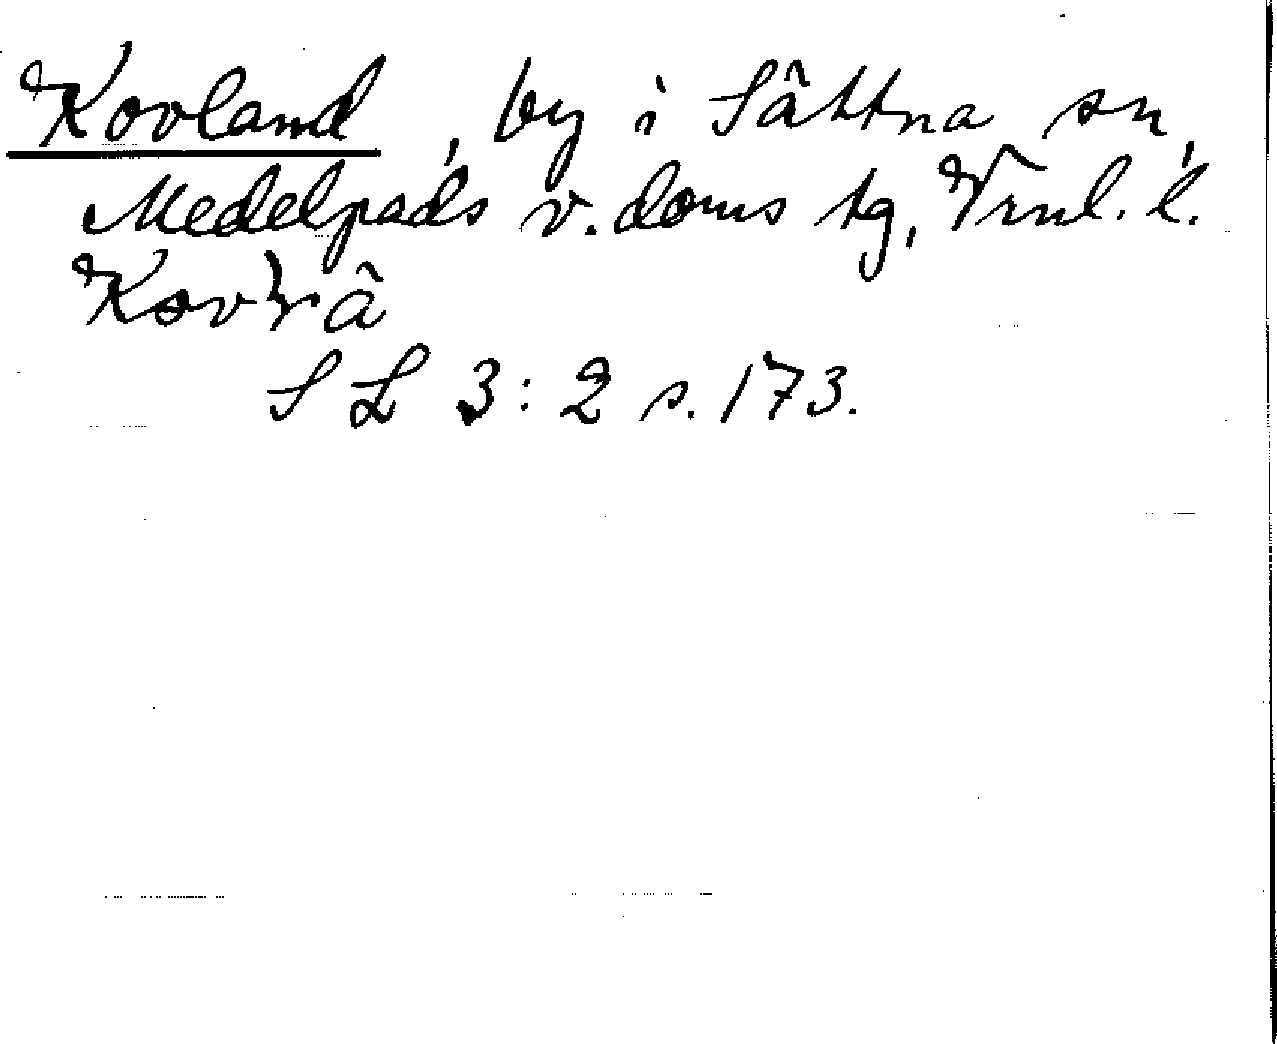 Kovland, by i Sättna sn,
Medelpads v. doms tg, Vrnl. l.
SL 3:2 s. 173.